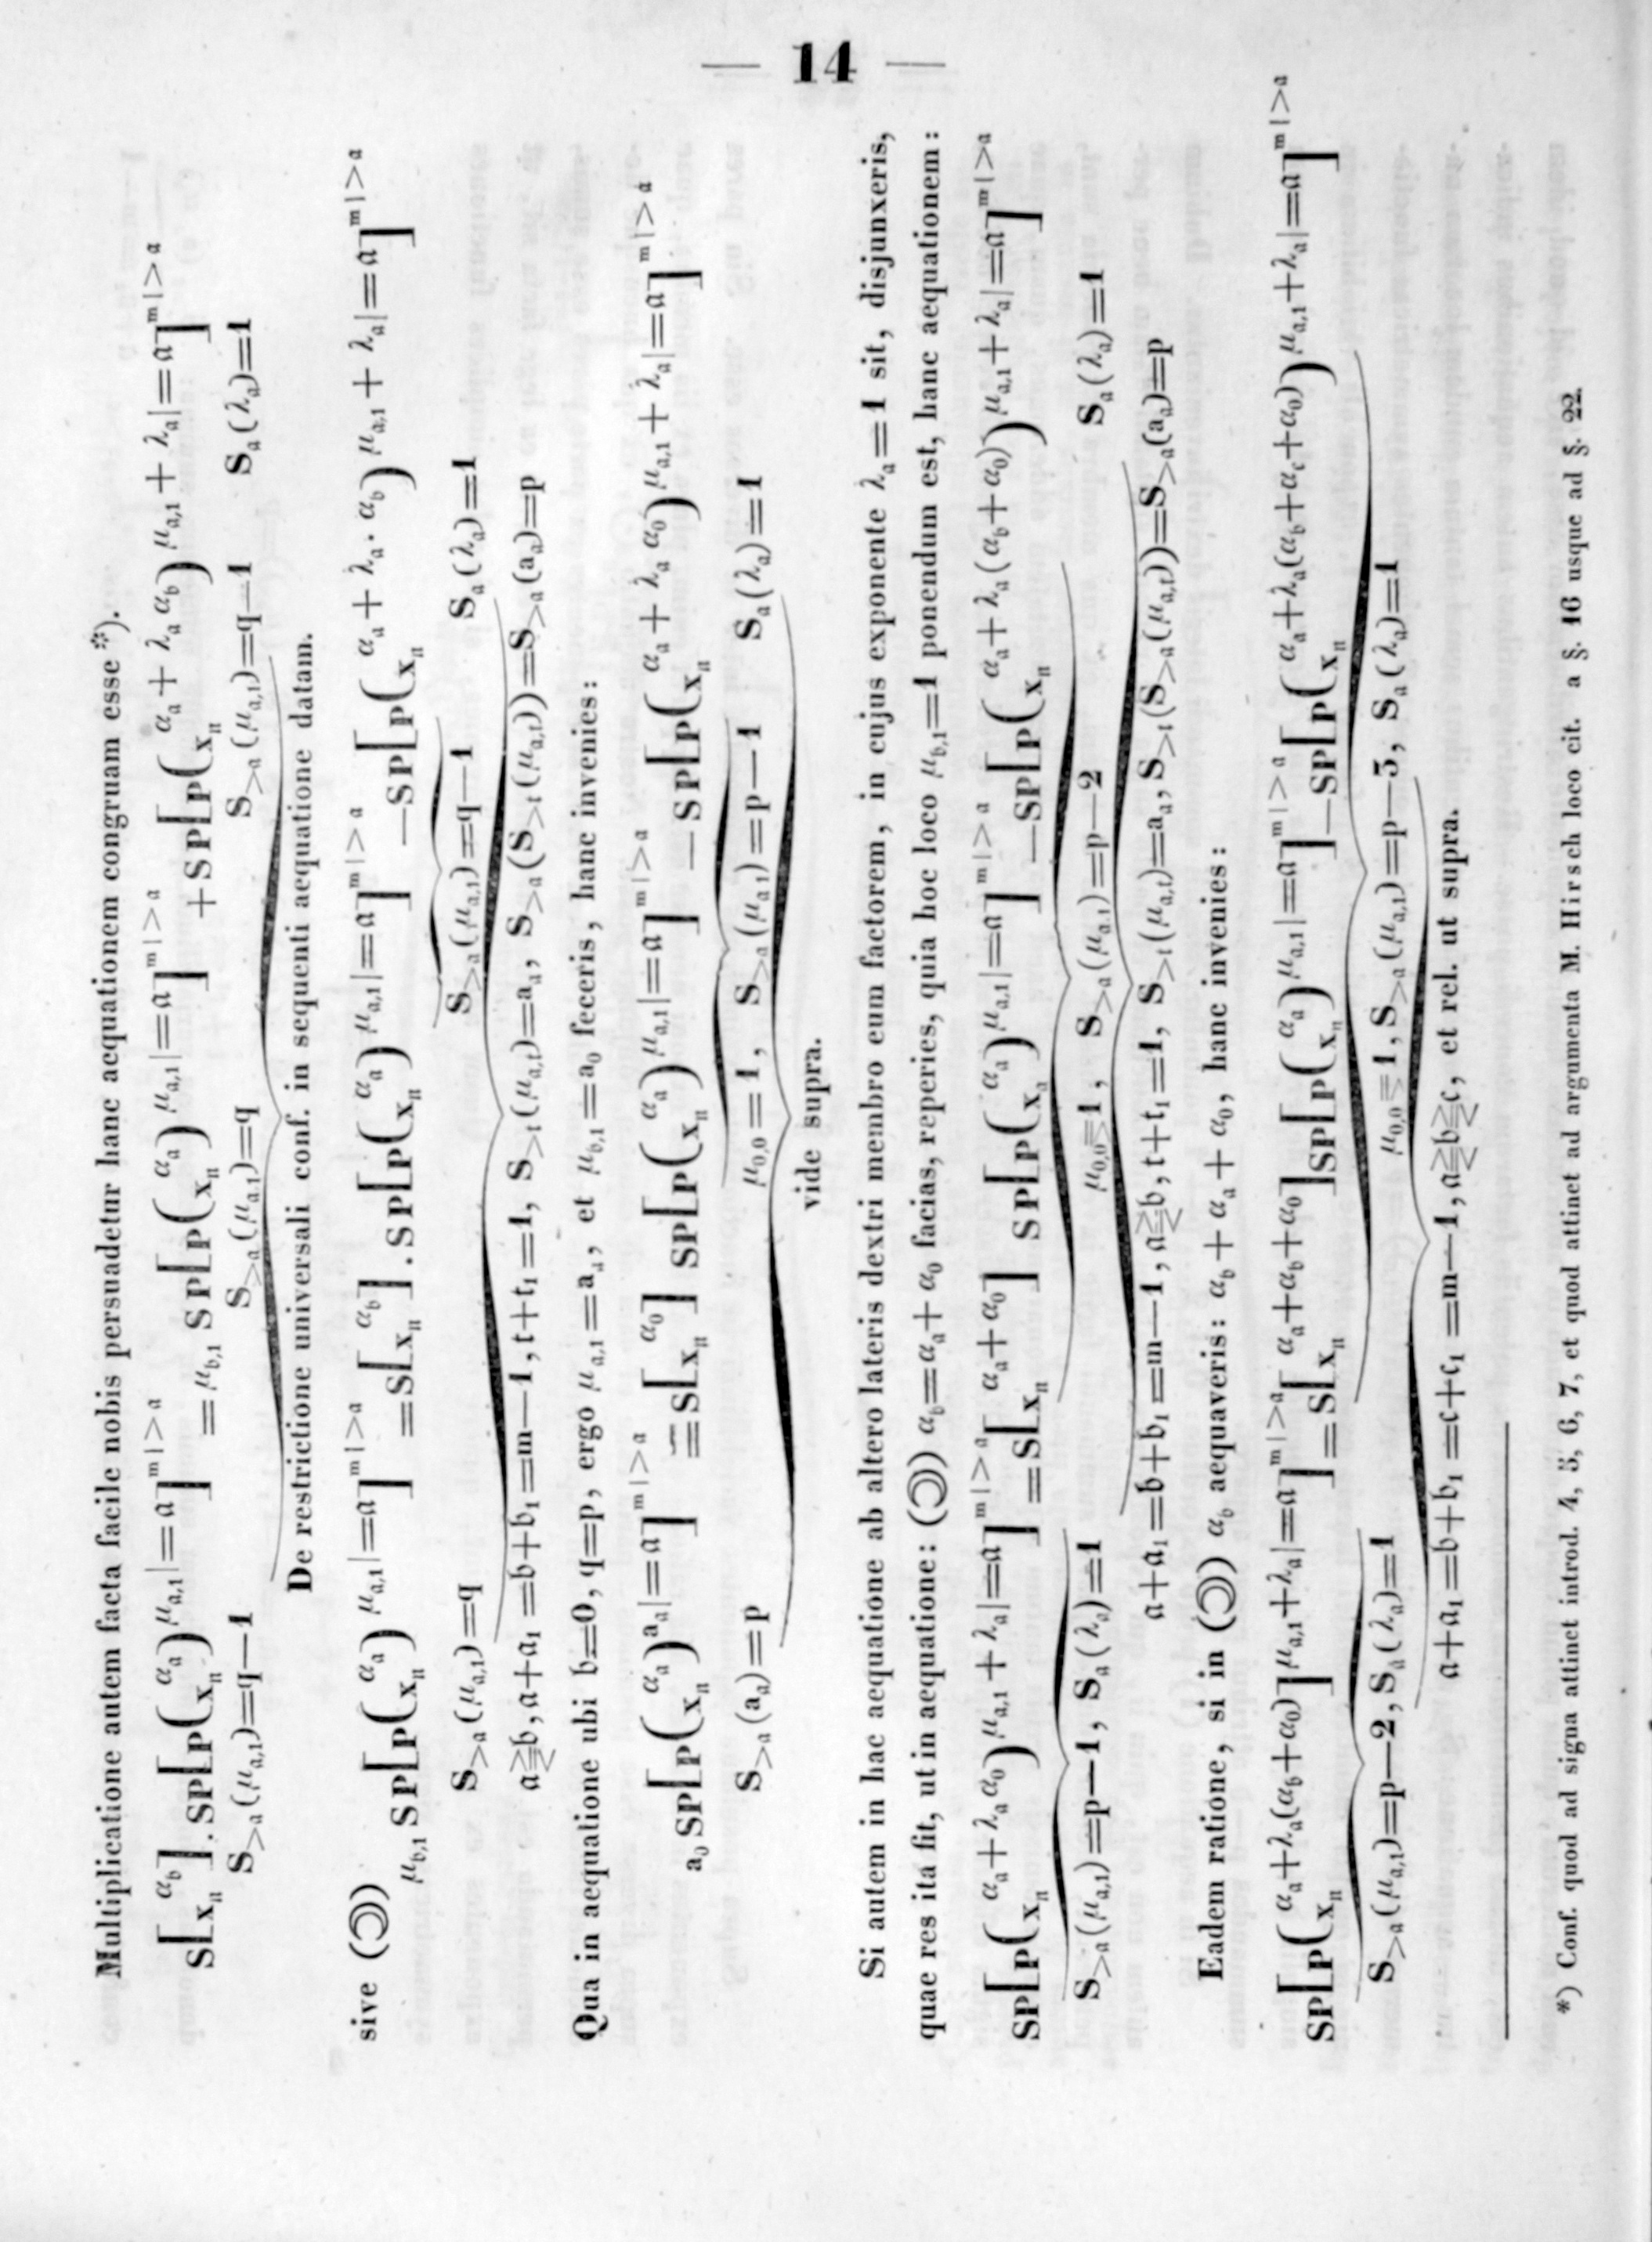 — 14 —
Multiplicatione autem facta facile nobis persuadetur hanc aequationem congruam esse *).
S[x_n^{α_b}] . SP[P(x_n^{α_a})^{μ_{a,1}|=a}]^{m|>a} = μ_{b,1} SP[P(x_n^{α_a})^{μ_{a,1}|=a}]^{m|>a} + SP[P(x_n^{α_a + λ_a α_b})^{μ_{a,1} + λ_a|=a}]^{m|>a}
S_{>a}(μ_{a,1})=q—1 S_{>a}(μ_{a,1})=q S_{>a}(μ_{a,1})=q—1 S_a(λ_a)=1
De restrictione universali conf. in sequenti aequatione datam.
sive (Ͽ) μ_{b,1} SP[P(x_n^{α_a})^{μ_{a,1}|=a}]^{m|>a} = S[x_n^{α_b}] . SP[P(x_n^{α_a})^{μ_{a,1}|=a}]^{m|>a} — SP[P(x_n^{α_a + λ_a . α_b})^{μ_{a,1} + λ_a|=a}]^{m|>a}
S_{>a}(μ_{a,1})=q S_{>a}(μ_{a,1})=q—1 S_a(λ_a)=1
a≧≤b, a+a_1=b+b_1=m—1, t+t_1=1, S_{>t}(μ_{a,t})=a_a, S_{>a}(S_{>t}(μ_{a,t}))=S_{>a}(a_a)=p
Qua in aequatione ubi b=0, q=p, ergo μ_{a,1}=a_a, et μ_{b,1}=a_0 feceris, hanc invenies:
a_0 SP[P(x_n^{α_a})^{a_a|=a}]^{m|>a} = S[x_n^{α_0}] SP[P(x_n^{α_a})^{μ_{a,1}|=a}]^{m|>a} — SP[P(x_n^{α_a + λ_a α_0})^{μ_{a,1} + λ_a|=a}]^{m|>a}
S_{>a}(a_a)=p μ_{0,0}=1, S_{>a}(μ_{a,1})=p—1 S_a(λ_a)=1
vide supra.
Si autem in hac aequatione ab altero lateris dextri membro eum factorem, in cujus exponente λ_a=1 sit, disjunxeris,
quae res ita fit, ut in aequatione: (Ͽ) α_b=α_a+α_0 facias, reperies, quia hoc loco μ_{b,1}=1 ponendum est, hanc aequationem:
SP[P(x_n^{α_a+λ_a α_0})^{μ_{a,1} + λ_a|=a}]^{m|>a} = S[x_n^{α_a+α_0}] SP[P(x_n^{α_a})^{μ_{a,1}|=a}]^{m|>a} — SP[P(x_n^{α_a+λ_a(α_b+α_0)})^{μ_{a,1}+λ_a|=a}]^{m|>a}
S_{>a}(μ_{a,1})=p—1, S_a(λ_a)=1 μ_{0,0}=1, S_{>a}(μ_{a,1})=p—2 S_a(λ_a)=1
a+a_1=b+b_1=m—1, a≧≤b, t+t_1=1, S_{>t}(μ_{a,t})=a_a, S_{>t}(S_{>a}(μ_{a,t}))=S_{>a}(a_a)=p
Eadem ratione, si in (Ͽ) α_b aequaveris: α_b + α_a + α_0, hanc invenies:
SP[P(x_n^{α_a+λ_a(α_b+α_0)}]^{μ_{a,1}+λ_a|=a}]^{m|>a} = S[x_n^{α_a+α_b+α_0}] SP[P(x_n^{α_a})^{μ_{a,1}|=a}]^{m|>a} — SP[P(x_n^{α_a+λ_a(α_b+α_c+α_0)})^{μ_{a,1}+λ_a|=a}]^{m|>a}
S_{>a}(μ_{a,1})=p—2, S_a(λ_a)=1 μ_{0,0}=1, S_{>a}(μ_{a,1})=p—3, S_a(λ_a)=1
a+a_1=b+b_1=c+c_1=m—1, a≧≤b≧≤c, et rel. ut supra.
*) Conf. quod ad signa attinet introd. 4, 5, 6, 7, et quod attinet ad argumenta M. Hirsch loco cit. a §. 16 usque ad §. 22.